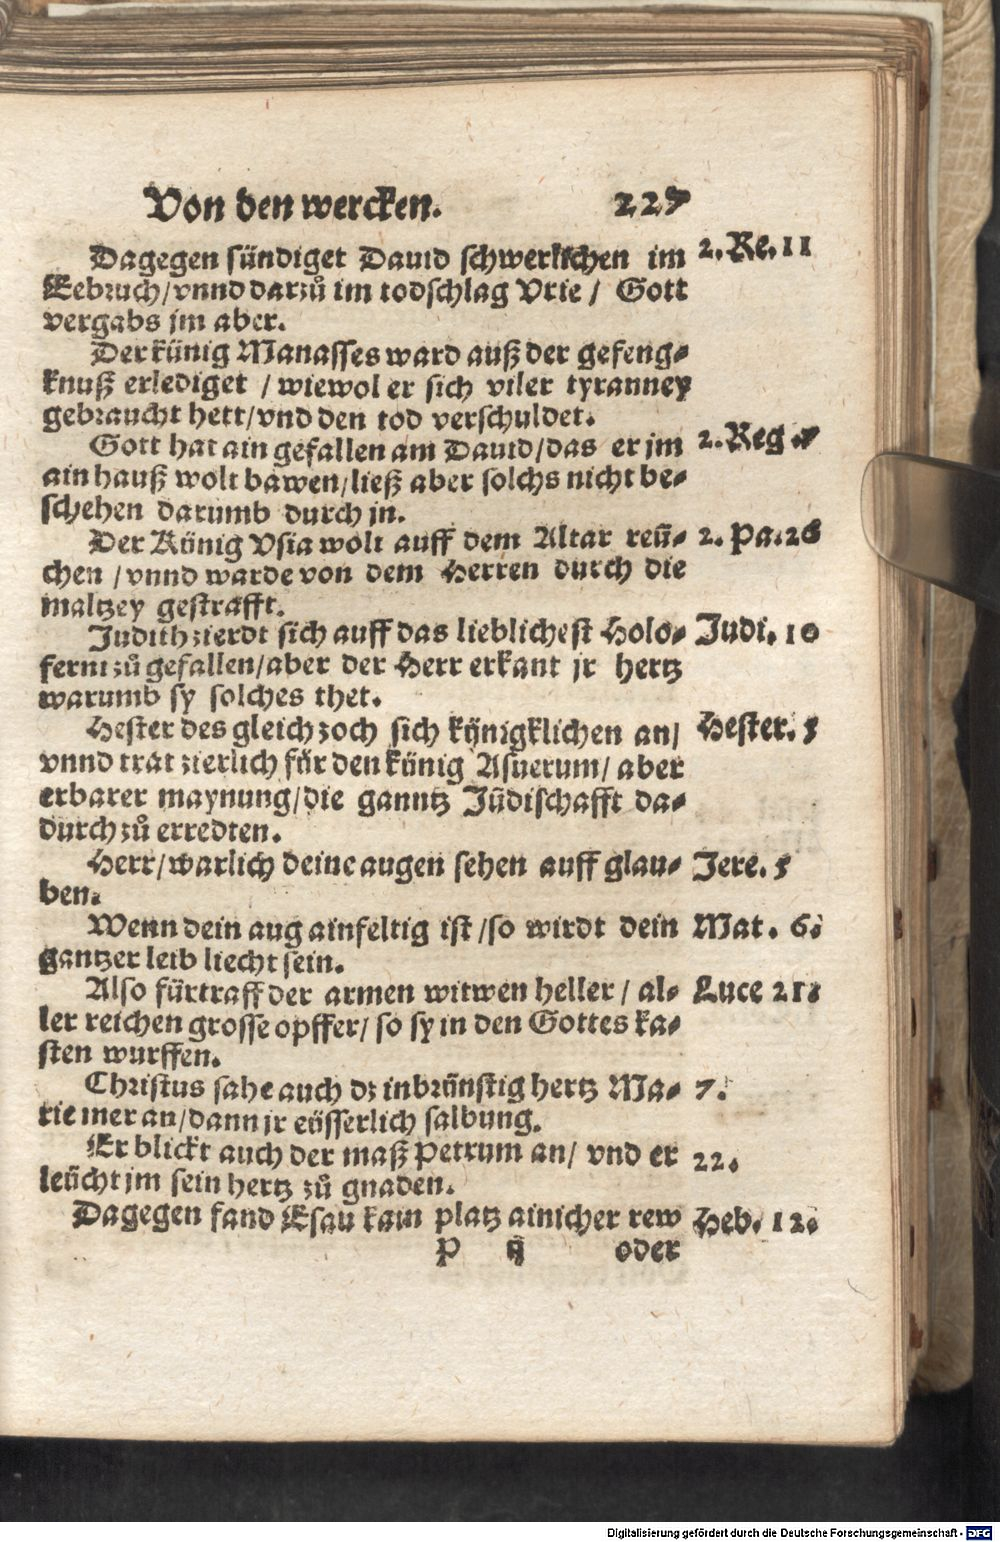 Von den wercken. 227
Dagegen sündiget Dauid schwerlichen im 2. Re. 11
Eebruch/vnnd darzů im todschlag Vrie/ Gott
vergabs jm aber.
Der künig Manasses ward auß der gefeng-
knuß erlediget /wiewol er sich viler tyranney
gebraucht hett/vnd den tod verschuldet.
Gott hat ain gefallen am Dauid/das er jm 2. Reg. 7
ain hauß wolt bawen/ließ aber solchs nicht be-
schehen darumb durch jn.
Der König Vsia wolt auff dem Altar reü- 2. Pa. 26
chen /vnnd warde von dem Herren durch die
maltzey gestrafft.
Judith zierdt sich auff das lieblichest Holo- Judi. 10
ferni zů gefallen/aber der Herr erkant jr hertz
warumb sy solches thet.
Hester des gleich zoch sich künigklichen an/ Hester. 5
vnnd trat zierlich für den künig Asuerum/ aber
erbarer maynung/die ganntz Jüdischafft da-
durch zů erredten.
Herr/warlich deine augen sehen auff glau- Jere. 5
ben.
Wenn dein aug ainfeltig ist/so wirdt dein Mat. 6.
gantzer leib liecht sein.
Also fürtraff der armen witwen heller/ al- Luce 21.
ler reichen grosse opffer/ so sy in den Gottes ka-
sten wurffen.
Christus sahe auch dz inbrünstig hertz Ma- 7.
rie mer an/dann jr eüsserlich salbung.
Er blickt auch der maß Petrum an/ vnd er 22.
leücht jm sein hertz zů gnaden.
Dagegen fand Esau kain platz ainicher rew Heb. 12.
P ij oder
Digitalisierung gefördert durch die Deutsche Forschungsgemeinschaft - DFG